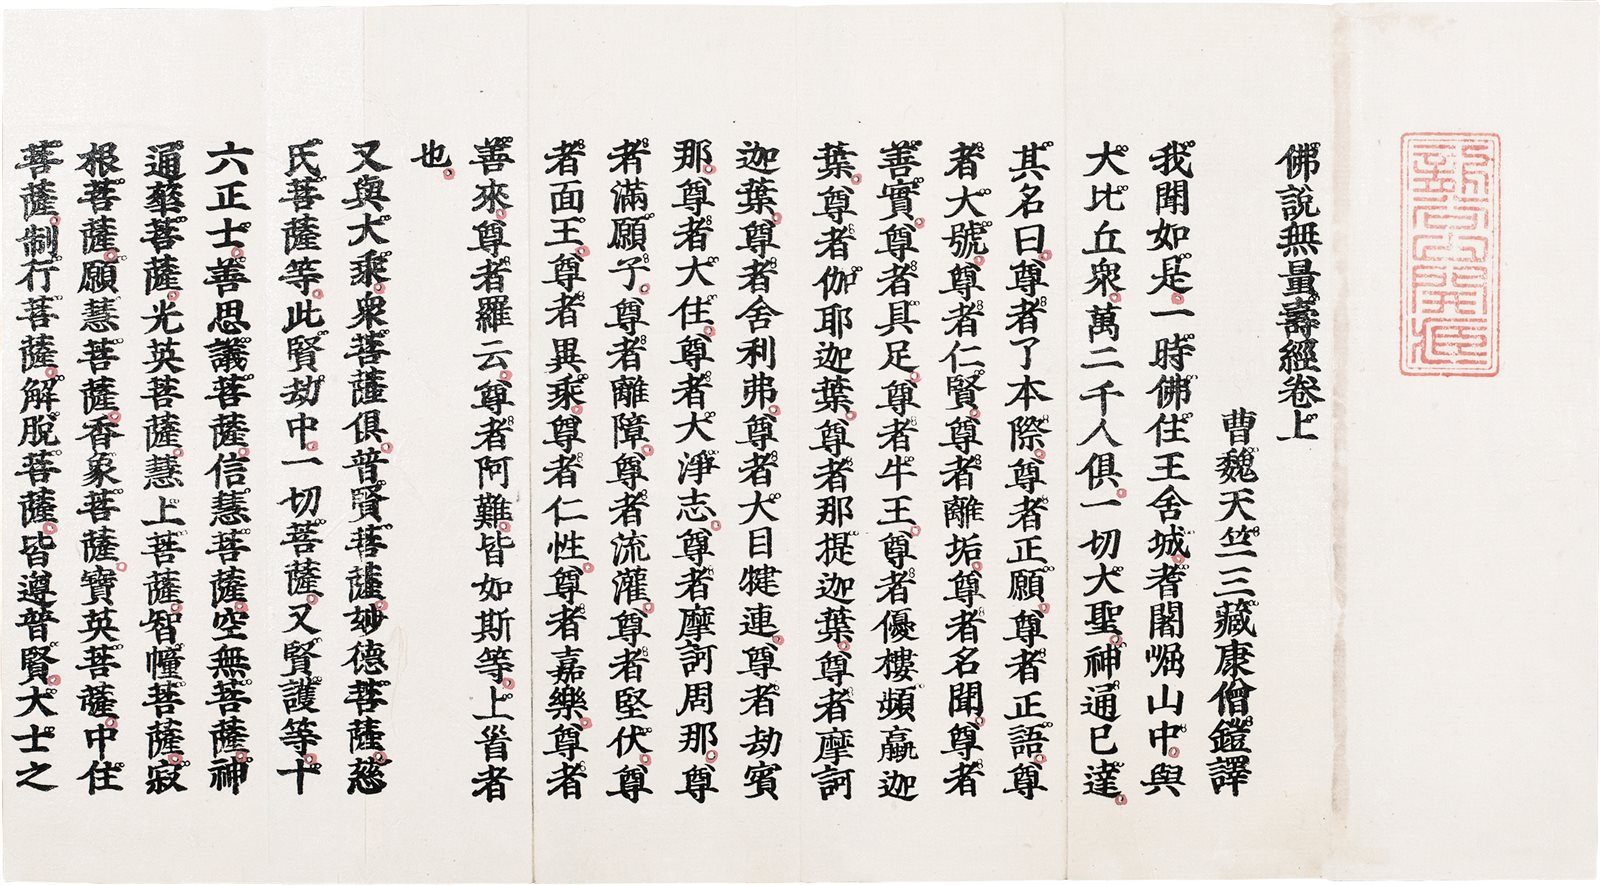 佛說無量壽經卷上
曹魏天竺三藏康僧鎧譯
我聞如是一時佛住王舍城耆闍崛山中與
大比丘衆萬二千人俱一切大聖神通已達
其名曰尊者了本際尊者正願尊者正語尊
者大號尊者仁賢尊者離垢尊者名聞尊者
善實尊者具足尊者牛王尊者優樓頻蠃迦
葉尊者伽耶迦葉尊者那提迦葉尊者摩訶
迦葉尊者舍利弗尊者大目犍連尊者劫賓
那尊者大住尊者大淨志尊者摩訶周那尊
者滿願子尊者離障尊者流灌尊者堅伏尊
者面王尊者異乘尊者仁性尊者嘉樂尊者
善來尊者羅云尊者阿難皆如斯等上首者
也
又與大乘衆菩薩俱普賢菩薩妙德菩薩慈
氏菩薩等此賢劫中一切菩薩又賢護等十
六正士善思議菩薩信慧菩薩空無菩薩神
通華菩薩光英菩薩慧上菩薩智幢菩薩寂
根菩薩願慧菩薩香象菩薩寶英菩薩中住
菩薩制行菩薩解脫菩薩皆遵普賢大士之